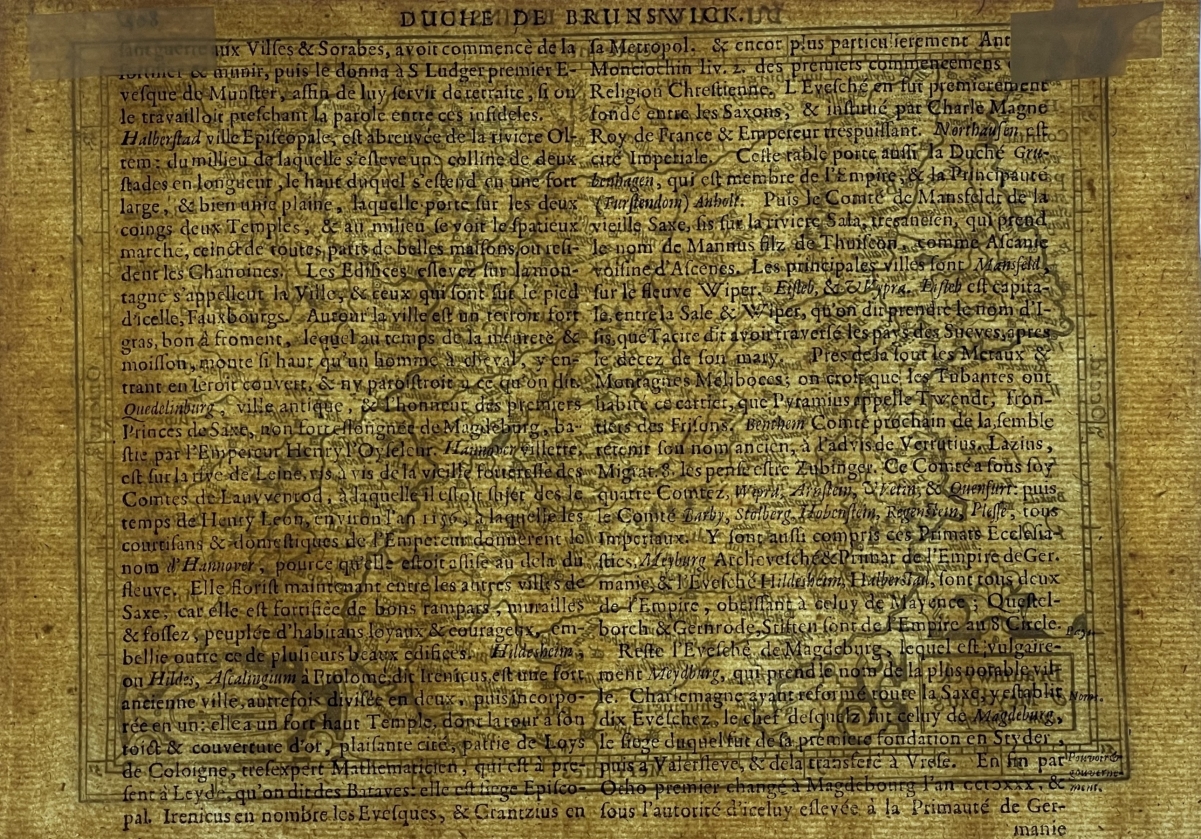 DUCHE DE BRUNSWICK.
sant guerre aux Vilses & Sorabes, avoit commencè de la
fortifier & munir, puis le donna à S Ludger premier E-
vesque de Munster, affin de luy servir de retraite, si on
le travailloit preschant la parole entre ces infideles.
Halberstad ville Episcopale, est abreuvée de la riviere Ol-
tem: du milieu de laquelle s'esleve une colline de deux
stades en longueur, le haut duquel s'estend en une fort
large, & bien unie plaine, laquelle porte sur les deux
coings deux Temples, & au milieu se voit le spatieux
marché, ceinct de toutes parts de belles maisons, ou resi-
dent les Chanoines. Les Edifices eslevez sur la mon-
tagne s'appellent la Ville, & ceux qui sont sur le pied
d'icelle, Fauxbourgs. Autour la ville est un terroir fort
gras, bon à froment, lequel au temps de la meureté &
moisson, monte si haut qu'un homme à cheval, y en-
trant en seroit couvert, & ny paroistroit y ce qu'on dit.
Quedelinburg, ville antique, & l'honneur des premiers
Princes de Saxe, non fort eslongnée de Magdeburg, ba-
stie par l'Empereur Henry l'Oyseleur. Hannover villette,
est sur la rive de Leine, vis à vis de la vieille forteresse des
Comtes de Lauvvenrod, à laquelle il estoit sujet dés le
temps de Henry Leon, environ l'an 1156, à laquelle les
courtisans & domestiques de l'Empereur donnerent le
nom d'Hannover, pource qu'elle estoit assise au dela du
fleuve. Elle florist maintenant entre les autres villes de
Saxe, car elle est fortifiée de bons rampars, murailles
& fossez, peuplée d'habitans loyaux & courageux, em-
bellie outre ce de plusieurs beaux edifices. Hildesheim,
ou Hildes, Ascalingium à Ptolome, dit Irenicus, est une fort
ancienne ville, autrefois divisée en deux, puis incorpo-
rée en un: elle a un fort haut Temple, dont la tour a son
toict & couverture d'or, plaisante cité, patrie de Loys
de Coloigne, tresexpert Mathematicien, qui est à pre-
sent à Leyde, qu'on dit des Bataves: elle est siege Episco-
pal. Irenicus en nombre les Evesques, & Crantzius en
sa Metropol. & encor plus particulierement Ant
Monciochin liv. 2. des premiers commencemens
Religion Chrestienne. L'Evesché en fut premierement
fondé entre les Saxons, & institué par Charle Magne
Roy de France & Empereur trespuissant. Northausen est
cité Imperiale. Ceste table porte aussi la Duché Gru-
benhagen, qui est membre de l'Empire, & la Principauté
(Furstendom) Anholt. Puis le Comté de Mansfeldt de la
vieille Saxe, sis sur la riviere Sala, tresancien, qui prend
le nom de Mannus filz de Thuiscon, comme Ascanie
voisine d'Ascenes. Les principales villes sont Mansfeld,
sur le fleuve Wiper, Eisleb, & Wypra. Eisleb est capita-
le, entre la Sale & Wiper, qu'on dit prendre le nom d'I-
sis, que Tacite dit avoir traversé les pays des Sueves, apres
le decez de son mary. Pres de là sont les Metaux &
Montagnes Meliboces; on croit que les Tubantes ont
habité ce cartier, que Pyramius appelle Twendt, fron-
tiers des Frisons. Benthem Comté prochain de la, semble
retenir son nom ancien, à l'advis de Verrutius. Lazius,
Migrat. 8. les pense estre Zubinger. Ce Comté a sous soy
quatre Comtez, Wipra, Arnstein, Wetin, & Quenfurt: puis
le Comté Barby, Stolberg, Hohenstein, Regenstein, Plesse, tous
Imperiaux. Y sont aussi compris ces Primats Ecclesia-
stics, Meyburg Archevesché & Primat de l'Empire de Ger.
manie, & l'Evesché Hildesheim, Halberstad, sont tous deux
de l'Empire, obeissant à celuy de Mayence; Questel-
borch & Gernrode, Stiften sont de l'Empire au 8 Circle.
Reste l'Evesché de Magdeburg, lequel est vulgaire-
ment Meydburg, qui prend le nom de la plus nomble vil-
le. Charlemagne ayant reformé toute la Saxe, y establit
dix Eveschez, le chef desquelz fut celuy de Magdeburg,
le siege duquel fut de sa premiere fondation en Styder,
puis à Valersleve, & de la transferé à Vrese. En fin par
Otho premier changé à Magdebourg l'an cccɔxxx. &
sous l'autorité d'iceluy eslevée à la Primauté de Ger-
manie
Pays.
Noms.
Pouvoir &
gouverne-
ment.